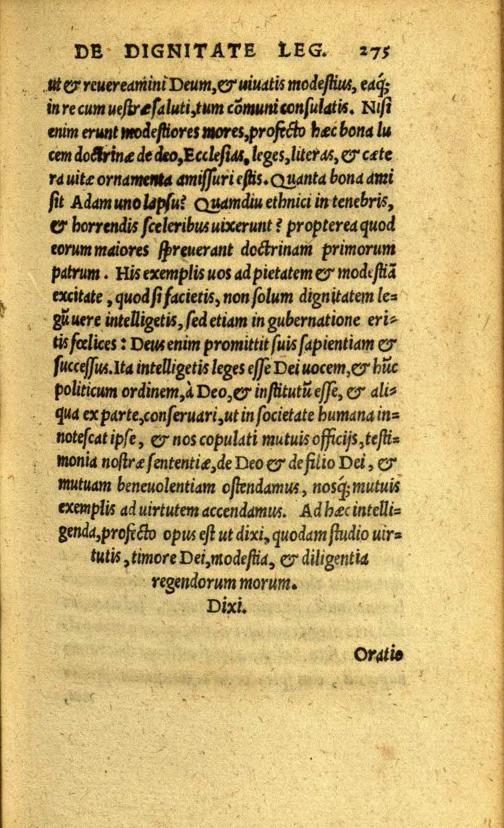 DE DIGNITATE LEG. 275
ut & reuereamini Deum, & uiuatis modestius, eaq́;
in re cum uestræ saluti, tum cõmuni consulatis. Nisi
enim erunt modestiores mores, profecto hæc bona lu
cem doctrinæ de deo, Ecclesias, leges, literas, & cæte
ra uitæ ornamenta amissuri estis. Quanta bona ami
sit Adam uno lapsu? Quamdiu ethnici in tenebris,
& horrendis sceleribus uixerunt? propterea quod
eorum maiores spreuerant doctrinam primorum
patrum. His exemplis uos ad pietatem & modestiã
excitate, quod si facietis, non solum dignitatem le=
gũ uere intelligetis, sed etiam in gubernatione eri=
tis fœlices: Deus enim promittit suis sapientiam &
successus. Ita intelligetis leges esse Dei uocem, & hũc
politicum ordinem, à Deo, & institutũ esse, & ali=
qua ex parte, conseruari, ut in societate humana in=
notescat ipse, & nos copulati mutuis officijs, testi=
monia nostræ sententiæ, de Deo & de filio Dei, &
mutuam beneuolentiam ostendamus, nosq́; mutuis
exemplis ad uirtutem accendamus. Ad hæc intelli=
genda, profecto opus est ut dixi, quodam studio uir=
tutis, timore Dei, modestia, & diligentia
regendorum morum.
Dixi.
Oratio